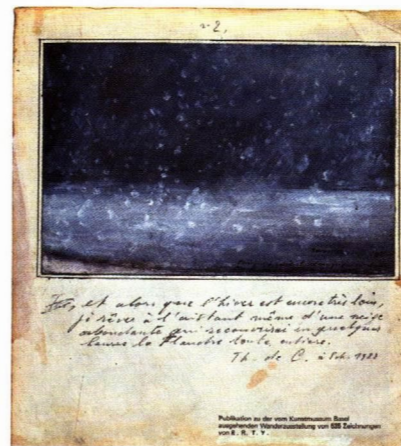 2.
et alors que l'hiver est encore très loin,
je rêve à l'instant même d'une neige
abondante qui recouvrirait en quelques
heures la Flandre toute entière.
Th. de C. à Sch. 1923
Publikation zu der vom Kunstmuseum Basel
ausgehenden Wanderausstellung von 525 Zeichnungen
von E. R. T. Y.